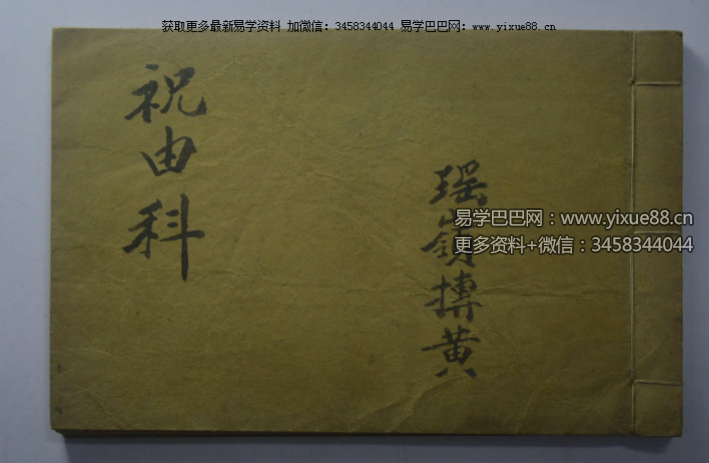 获取更多最新易学资料 加微信：3458344044 易学巴巴网：www.yixue88.cn
祝由科
瑶岭搏黄
易学巴巴网：www.yixue88.cn
更多资料+微信：3458344044